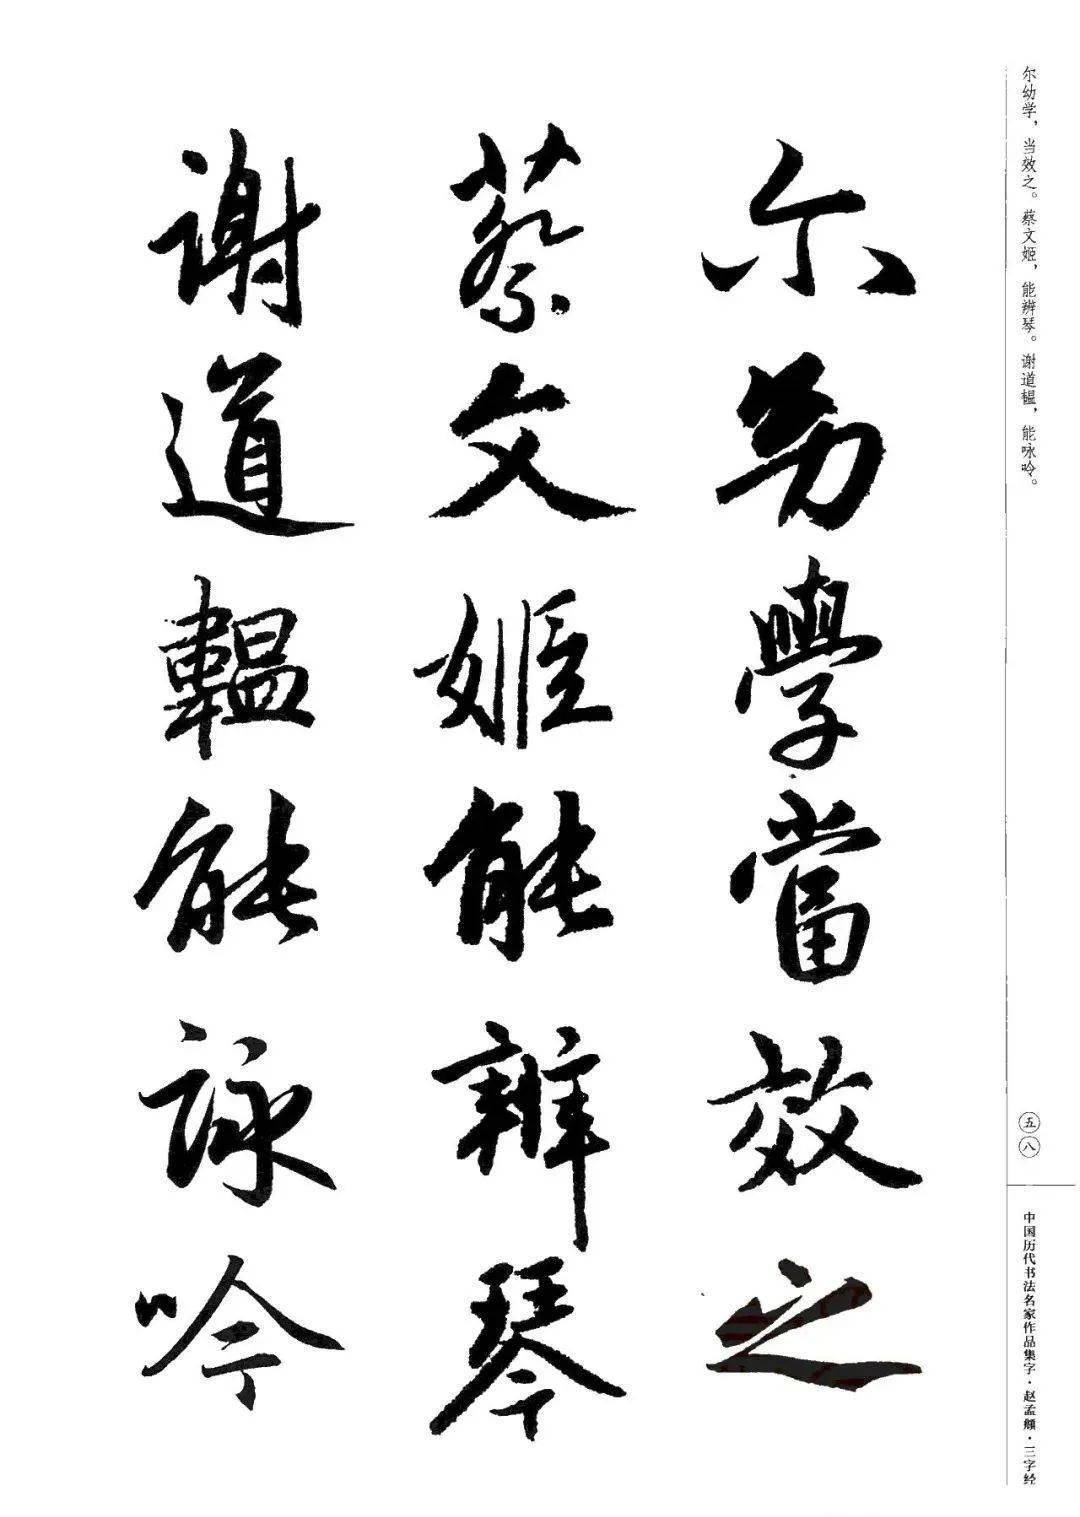 尔幼学，当效之。蔡文姬，能辨琴。谢道韫，能咏吟。
五八
中国历代书法名家作品集字·赵孟頫·三字经
尒幼學當效之
蔡文姬能辨琴
謝道韞能詠吟